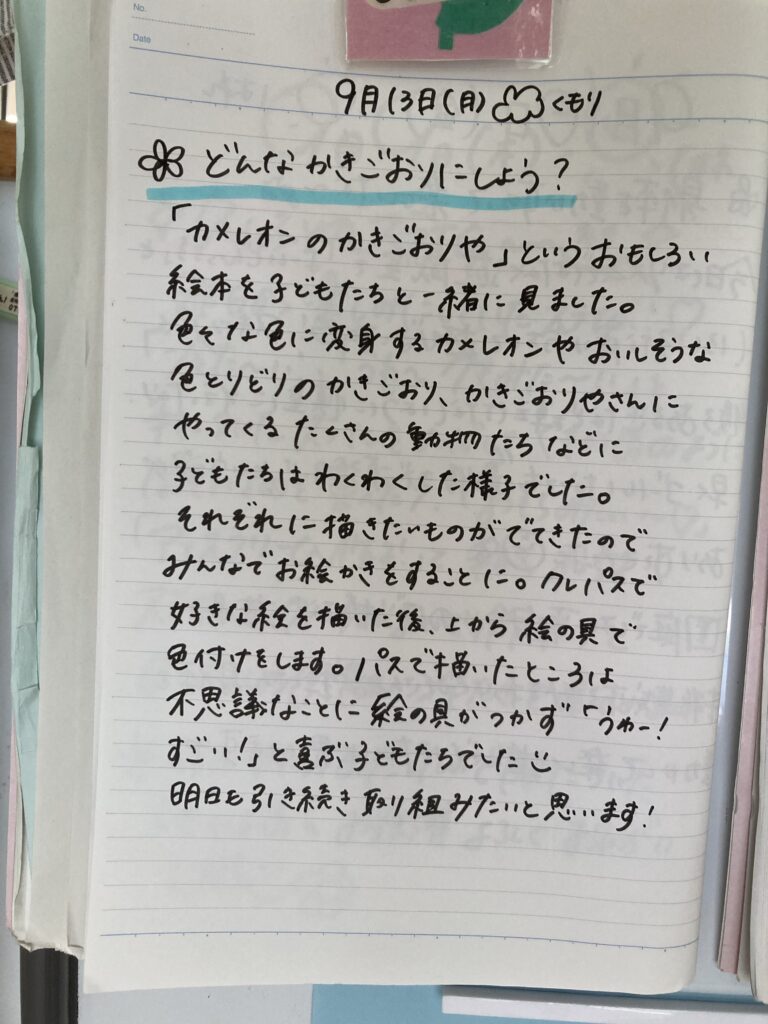 No.
Date
9月13日(月) くもり
どんなかきごおりにしよう?
「カメレオンのかきごおりや」というおもしろい
絵本を子どもたちと一緒に見ました。
色々な色に変身するカメレオンやおいしそうな
色とりどりのかきごおり、かきごおりやさんに
やってくるたくさんの動物たちなどに
子どもたちはわくわくした様子でした。
それぞれに描きたいものがでてきたので
みんなでお絵かきをすることに。クレパスで
好きな絵を描いた後、上から絵の具で
色付けをします。パスで描いたところは
不思議なことに絵の具がつかず「うわー!
すごい!」と喜ぶ子どもたちでした
明日も引き続き取り組みたいと思います!